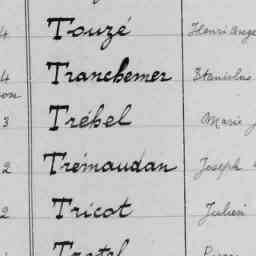 4 Touzé Henri
4 Tranchemer Stanislas
3 Trébel Marie
2 Trémaudan Joseph
2 Tricot Julien